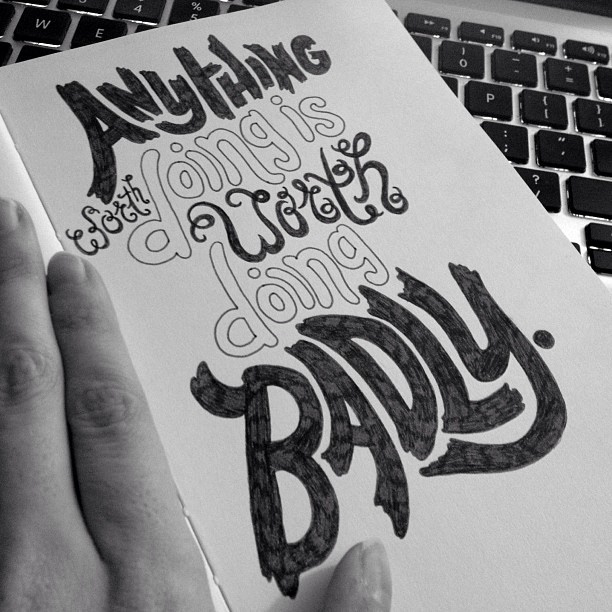 ANYTHING
Worth doing is
Worth
doing
BADLY.
%
5
4
W
E
)
0
_
-
+
=
P
{
[
}
:
;
"
?